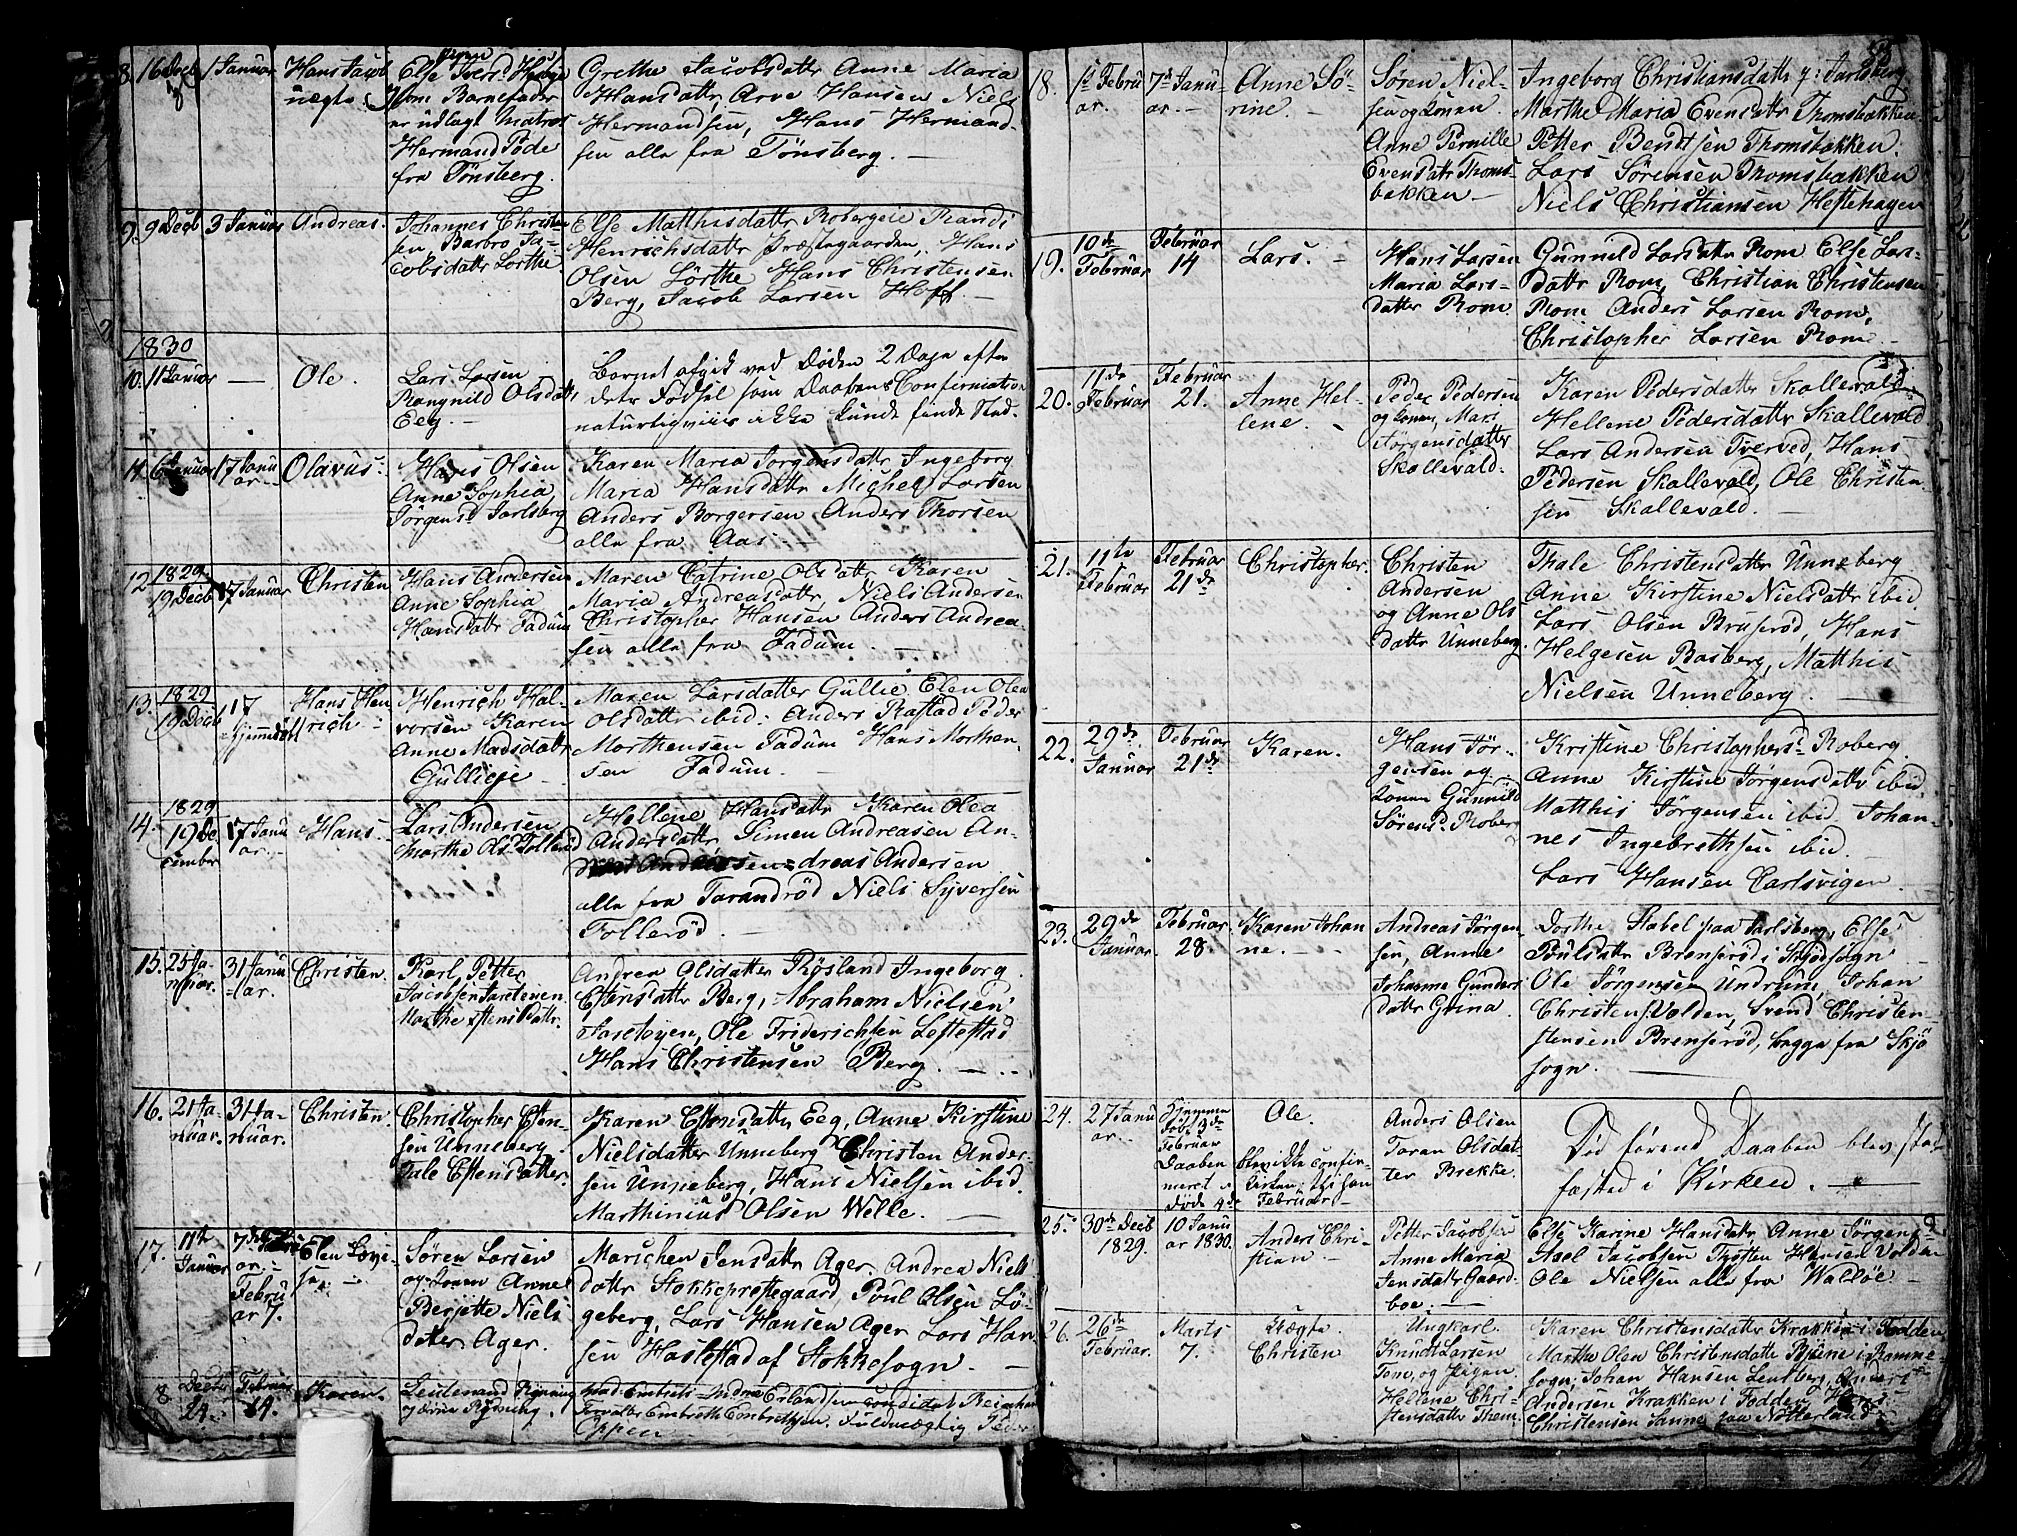 8. 16 Decb 1 Januar Hans Jacob
uægte
Else Iversd.
som Barnefader
er udlagt Matros
Hermand Pöde
fra Tönsberg.
Grethe Jacobsdatter Anne Maria
Hansdatter, Arve Hansen Niels
Hermandsen, Hans Hermand-
sen alle fra Tönsberg. —
9. 9 Decb 3 Januar Andreas.
Johannes Christen-
sen Barbro Ja-
cobsdattr Lörthe
Else Matthisdattr Robergeie Randi
Henrichsdattr Præstegaarden, Hans
Olsen Lörthe Hans Christensen
Berg, Jacob Larsen Hoff. —
1830
10. 11 Januar — Ole.
Lars Larsen
Rangnild Olsdattr
Eeg. —
Barnet afgik ved Döden 2 Dage efter
dets Födsel som Daabens Confirmation
naturligviis ikke kunde finde Sted.
11. 6 Januar 17 Janu
ar. Olavus.
Hans Olsen
Anne Sophia
Jörgensd. Jarlsberg
Karen Maria Jörgensdattr Ingeborg
Maria Hansdattr Michel Larsen
Anders Borgersen Anders Thorsen
alle fra Aas —
12 1829
19 Decb 17 Januar Christen
Hans Andersen
Anne Sophia
Hansdattr Fadum
Maren Catrine Olsdattr Karen
Maria Andreasdattr Niels Andersen
Christopher Hansen Anders Andrea-
sen alle fra Fadum. —
13. 1829
19 Decb 17
Hjemmedöbt Hans Hen
rich —
Henrich Hal-
vorsen Karen
Anne Madsdattr
Gullieje —
Maren Larsdatter Gullie, Elen Olea
Olsdattr ibid: Anders Rastad Peder
Morthensen Fadum Hans Morthen-
sen Fadum. —
14. 1829
19 De
cember 17 Janu
ar. Hans.
Lars Andersen
Marthe Ols
Hellene Hansdattr Karen Olea
Andersdattr, Simen Andreasen An-
dreas Andersen
alle fra Tarandröd Niels Syversen
Tolleröd. —
15. 25 Ja-
nuar. 31 Janu
ar. Christen.
Karl Petter
Jacobsen
Marthe Estensdattr.
Andrea Olsdatter Rösland Ingeborg
Estensdattr Berg, Abraham Nielsen
Ole Friderichsen Leftestad
Hans Christensen Berg. —
16. 21 Ja-
nuar. 31 Ja-
nuar. Christen.
Christopher Esten-
sen Unneberg
Tale Estensdatter.
Karen Estensdattr Eeg, Anne Kirstine
Nielsdatter Unneberg Christen Ander-
sen Unneberg, Hans Nielsen ibid.
Marthinius Olsen Welle. —
17. 11te
Januar
Febru
ar 7. Elen Lovi-
sa —
Sören Larsen
og Konen Anne
Berjette Niels
datter Ager.
Marichen Jensdattr Ager, Andrea Niels
dattr Stokkeprestegaard, Poul Olsen Lö-
geberg, Lars Hansen Ager, Lars Han
sen Haslestad af Stokkesogn. —
8 Decbr
24. Februar
14. Karen.
Leutenand Rynning
Andrea Erlandsen
Forvalter Embreth Embrethsen. Fuldmægtig
Oppen
18. 1ste Febru
ar. 7de Janu-
ar. — Anne Sö-
rine. —
Sören Niel-
sen og Konen
Anne Pernille
Evensdatr Thoms-
bakken —
Ingeborg Christiansdattr Jarlsberg
Marthe Maria Evensdattr Thomsbakken.
Petter Bendtsen Thomsbakken.
Lars Sörensen Thomsbakken
Niels Christiansen Hestehagen
19. 10de
Februar Februar
14 Lars. —
Hans Larsen
Maria Lars-
datter Rom
Gunnild Larsdattr Rom Else Lars-
dattr Rom, Christian Christensen
Rom Anders Larsen Rom,
Christopher Larsen Rom. —
20. 11de
Februar Februar
21. Anne Hel-
lene. —
Peder Pedersen
og Konen, Mari
Jörgensdatter
Skallevald.
Karen Pedersdattr Skallevald
Hellene Pedersdattr Skallevald
Lars Andersen Tverved, Hans
Pedersen Skallevald, Ole Christen-
sen Skallevald. —
21. 11te
Februar Februar
21de Christopher.
Christen
Andersen
og Anne Ols
dattr Unneberg.
Thale Christensdattr Unneberg
Anne Kirstine Nielsdattr ibid
Lars Olsen Bruseröd, Hans
Helgesen Basberg, Matthis
Nielsen Unneberg. —
22. 29de
Januar Februar
21de Karen.
Hans Jör-
gensen og
Konen Gunnild
Sörensd. Roberg
Kristine Christophersd. Roberg
Anne Kirstine Jörgensdattr ibid.
Matthis Jörgensen ibid. Johan-
nes Ingebrethsen ibid. —
Lars Hansen Carlsvigen.
23. 29de
Januar. Februar
28 Karen Johan
ne. —
Andreas Jörgen
sen, Anne
Johanne Gunders
datter Grina
Dorthe Stabel paa Jarlsberg, Else
Poulsdattr Brenseröd i Skjösogn
Ole Jörgensen Undrum, Johan
Christen: Volden, Svend Christen-
stensen Brenseröd, begge fra Skjö
sogn. —
24. 27 Janu
ar. Hjemme
döbt 3de
Februar
Daaben
döde 4de Ole.
Februar —
Anders Olsen
Taran Olsdat-
ter Brekke.
Död förend Daaben blev stad-
fæsted i Kirken. —
25. 30de Decb
1829. 10 Janu
ar 1830. Anders Chri-
stian —
Petter Jacobsen
Anne Maria
Jensdattr Gaard-
boe. —
Else Karine Hansdattr Anne Jörgensd.
Axel Jacobsen Thosten Hansen Volden
Ole Nielsen alle fra Walløe —
26. 26de
Februar. Marts
7. Uægte
Christen
Ungkarl.
Knudt Larsen
Tom, og Pigen
Hellene Chri-
stensdattr Them.
Karen Christensdattr Krakken i Fodden,
Marthe Olea Christensdattr Bjune i Ramme-
sogn; Johan Hansen Lensberg, Anders
Andersen Krakken i Fodden, Hans
Christensen Sanne paa Nötterland —